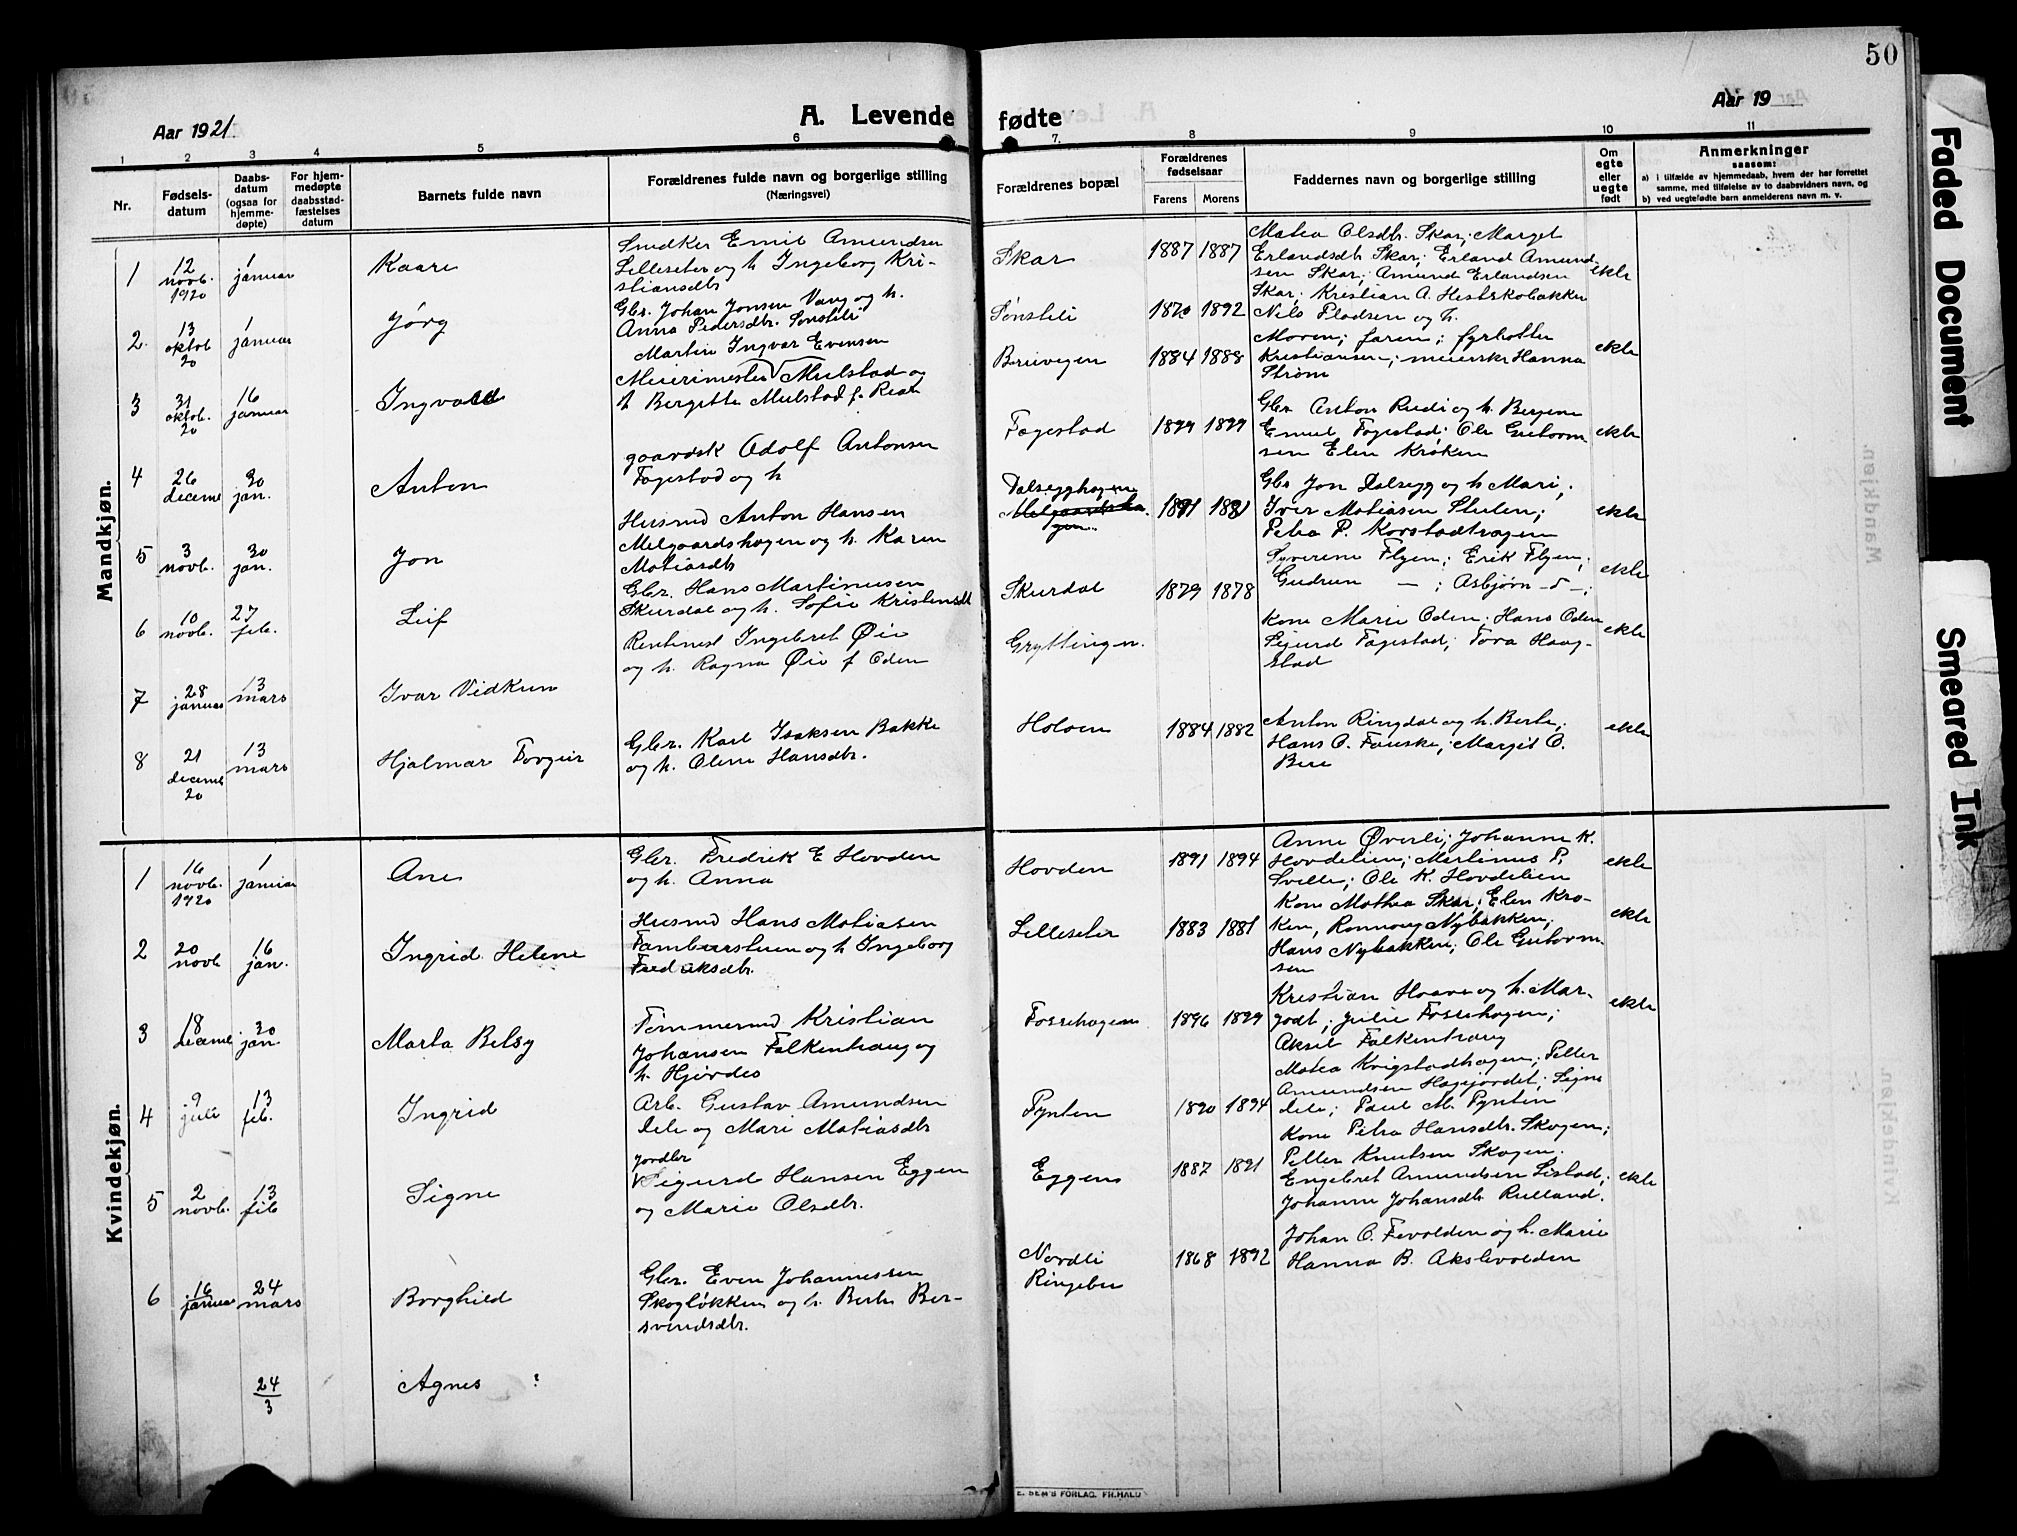 50
Aar 1921.
A. Levende
fødte
Aar 19
1 2 3 4 5 6 7. 8 9 10 11
Nr.
Fødsels-
datum
Daabs-
datum
(ogsaa for
hjemme-
døpte)
For hjem-
medøpte
daabsstad-
fæstelses
datum
Barnets fulde navn
Forældrenes fulde navn og borgerlige stilling
(Næringsvei)
Forældrenes bopæl
Forældrenes
fødselsaar
Farens Morens
Faddernes navn og borgerlige stilling
Om
egte
eller
uegte
født
Anmerkninger
saasom:
a) i tilfælde av hjemmedaab, hvem der har forrettet
samme, med tilføielse av to daabsvidners navn, og
b) ved uegtefødte barn anmelderens navn m. v.
Mandkjøn.
1 12 novb. 1920 1 januar Kaare
Snedker Emil Amundsen
Lilleseter og h. Ingeborg Kri-
stiansdtr
Skar 1887 1887
Matea Olsdtr. Skar; Marget
Erlandsdtr Skar; Erland Amund-
sen Skar; Amund Erlandsen
Skar; Kristian A. Hestskobakken
ekte
2. 13 oktob 20 1 januar Jørg
Gbr. Johan Jonsen Vang og h.
Anna Pedersdtr. Sønstili
Sønstili 1870 1892
Nils Pladsen og h.
Moren; faren; fyrbøter
Kristiansen; meierske Hanna
Strøm
ekte
3 31 oktob. 20 16 januar Ingvald
Martin Ingvar Evensen
Meierimester Mulstad og
h Bergitte Mulstad f. Reat
Beivegen 1884 1888
ekte
4 26 decemb 30 jan. Anton
gaardsk Adolf Antonsen
Fagestad og h
Fagestad 1899 1899
Gbr Anton Rudi og h. Bergine
Emil Fagestad; Ole Guttorm
sen Elen Kroken
ekte
5 3 novb. 30 jan. Jon
Husmd Anton Hansen
Melgaardshagen og h. Karen
Matiasdtr
Dalsegghagen
Melgaardsha
gen. 1891 1881
Gbr Jon Dalsegg og h Mari;
Iver Matiasen Stulen;
Petra P. Korstadtragen
ekte
6 10 novb. 27 feb. Leif
Gbr. Hans Martinusen
Skurdal og h. Sofie Kristensdt
Skurdal 1879 1878
Syverine Flyen; Erik Flyen;
Gudrun — ; Asbjørn - d - ;
ekte
7 28 januar 13 mars Ivar Vidkun
Rentenist Ingebret Øie
og h. Ragna Øie f Oden
Gryttingen.
Kone Marie Oden; Hans Oden
Sigurd Fagestad; Tora Haug-
stad
8 21 decemb 20 13 mars Hjalmar Torgeir
Gbr. Karl Isaksen Bakke
og h. Oline Hansdtr.
Holoen 1884 1882
Anton Ringdal og h. Berte;
Hans O. Fauske; Margit O.
Beie
ekte
Kvindekjøn.
1 16 novb. 1920 1 januar Ane
Gbr. Fredrik E Hovden
og h. Anna
Hovden 1891 1894
Anne Øverli; Johanne K.
Hovdelien; Martinus P.
Svelle; Ole K. Hovdelien
ekte
2 20 novb 16 jan. Ingrid Helene
Husmd Hans Matiasen
og h Ingeborg
Fredriksdtr.
Lilleseter 1883 1881
Kone Mathea Skar; Elen Kro-
ken, Rønnoug Nybakken;
Hans Nybakken; Ole Guttorm-
sen
ekte
3 18 decemb 30 jan. Marta Betsy
Tømmermd Kristian
Johansen Falkenhaug og
h. Hjørdis
Fossehagen 1896 1899
Kristian Haave og h. Mar-
godt; Julie Fossehagen;
Aksel Falkenhaug
ekte
4 9 juli 13 feb. Ingrid
Arb. Gustav Amundsen
Lele og Mari Matiasdtr
Pynten 1890 1894
Matea Krigstadhagen; Petter
Amundsen Hagejordet; Signe
Lele; Paul M. Pynten
5 2 novb. 13 feb Signe
Jordbr
Sigurd Hansen Eggen
og Marie Olsdtr.
Eggen 1887 1891
Kone Petra Hansdtr. Skogen;
Petter Knutsen Skogen.
Engebret Amundsen Listad;
Johanne Johansdtr Rulland.
ekte
6 16 januar 24 mars Borghild
Gbr. Even Johannessen
Skogløkken og h. Berte Ber-
svendsdtr.
Nordli
Ringebu 1868 1892
Johan O. Fevolden og h. Marie
Hanna B. Akslevolden
24/3 Agnes ?
E. SEM'S FORLAG. FR.HALD
Faded Document
Smeared Ink